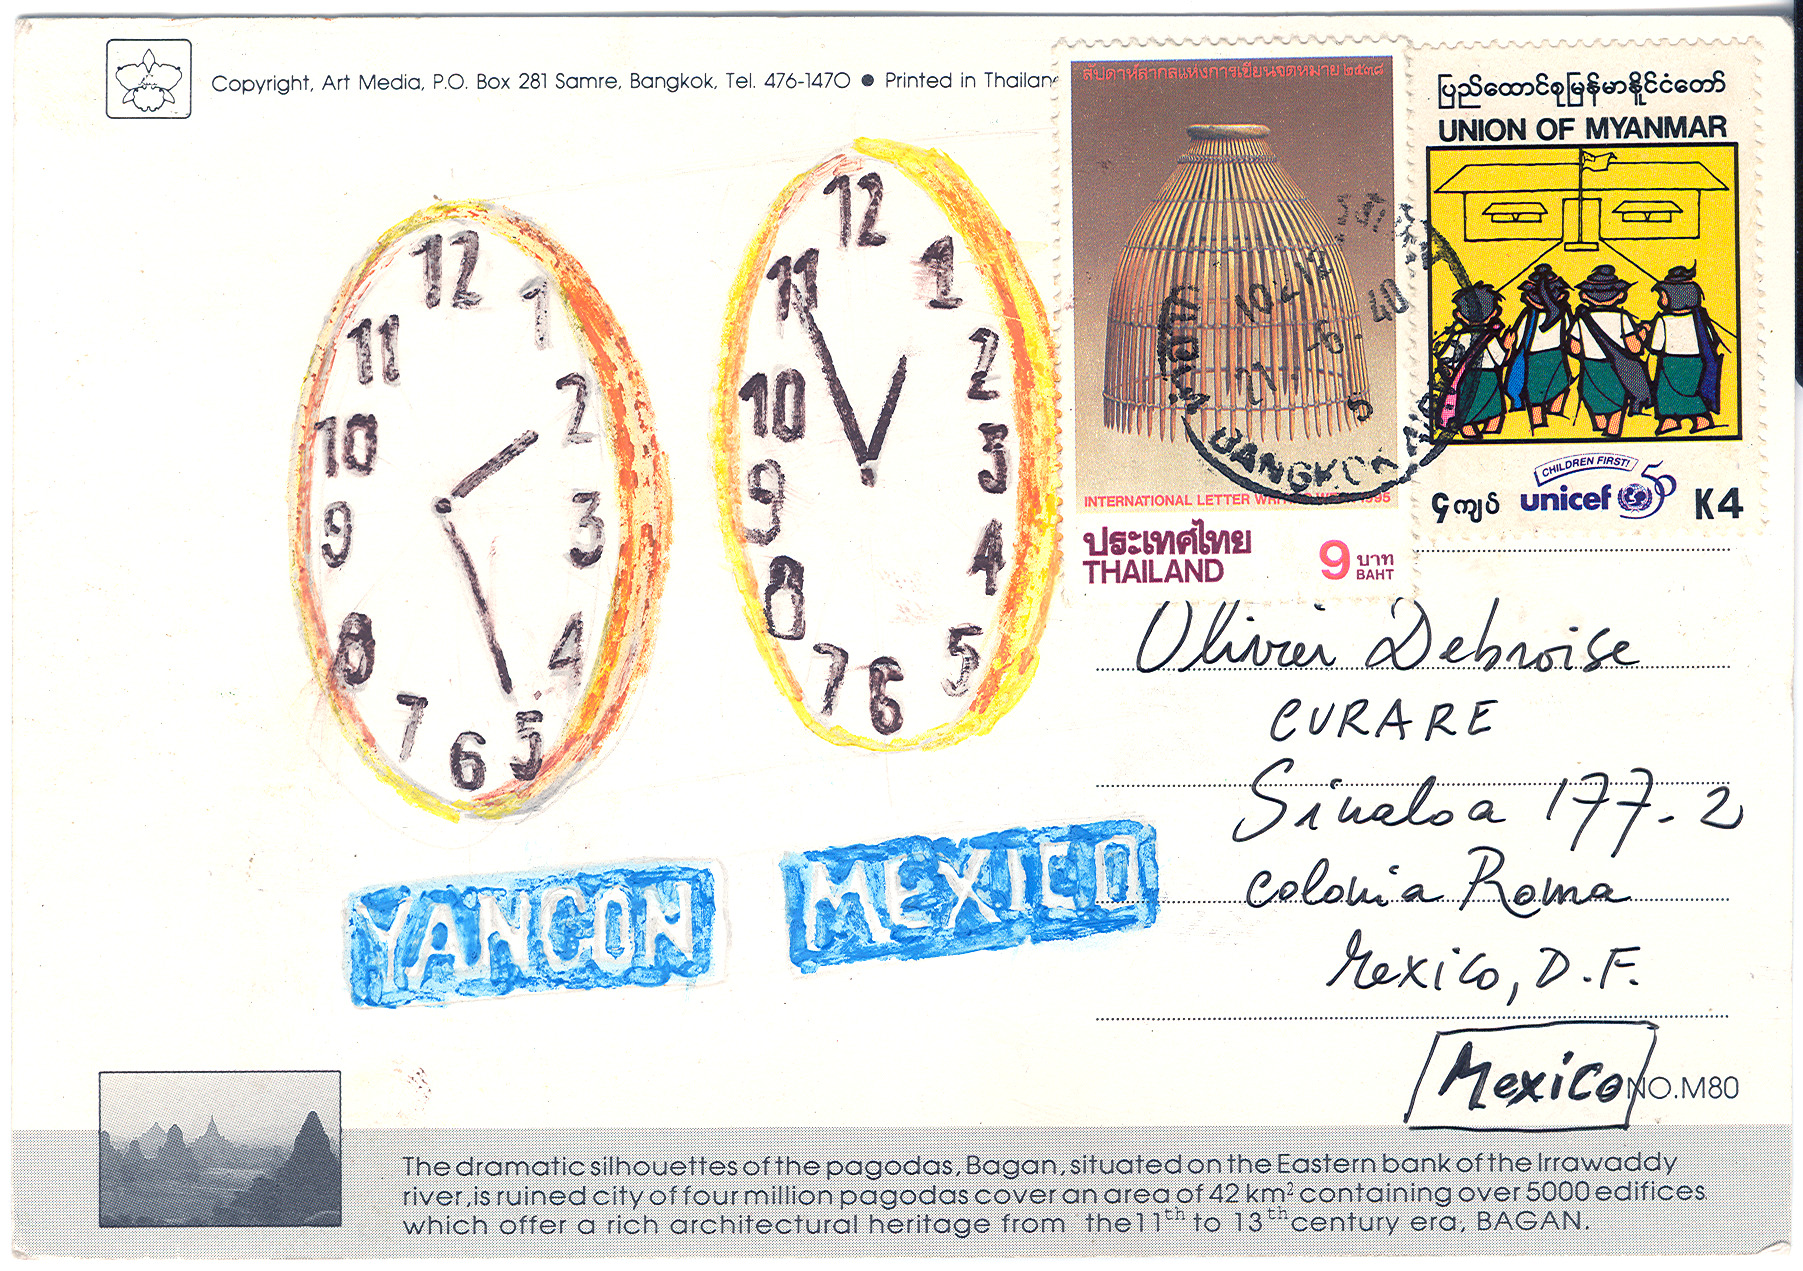 Copyright, Art Media, P.O. Box 281 Samre, Bangkok, Tel. 476-1470 ● Printed in Thailan
สัปดาห์สากลแห่งการเขียนจดหมาย ๒๕๓๘
INTERNATIONAL LETTER WRITING WEEK 1995
ประเทศไทย
THAILAND
9 บาท
BAHT
ပြည်ထောင်စုမြန်မာနိုင်ငံတော်
UNION OF MYANMAR
CHILDREN FIRST!
unicef 50
၄ကျပ်
K4
BANGKOK
12
1
2
3
4
5
6
7
8
9
10
11
12
1
2
3
4
5
6
7
8
9
10
11
YANGON
MEXICO
Olivier Debroise
CURARE
Sinaloa 177-2
Colonia Roma
Mexico, D.F.
Mexico
NO.M80
The dramatic silhouettes of the pagodas, Bagan, situated on the Eastern bank of the Irrawaddy
river, is ruined city of four million pagodas cover an area of 42 km² containing over 5000 edifices
which offer a rich architectural heritage from the 11th to 13th century era, BAGAN.